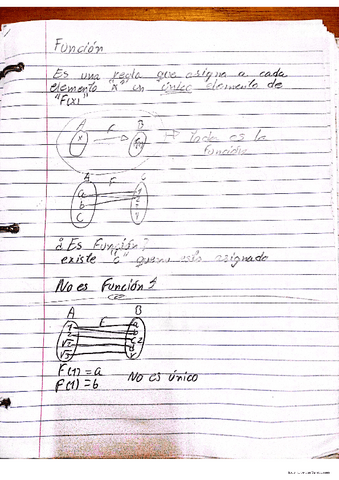 Función
Es una regla que asigna a cada
elemento "x" un único elemento de
"F(x)"
A F B
x F(x) Toda es la
función
A F C
a
b
c
¿Es Función?
existe "c" que no esta asignado
No es Función
A F B
1 a
b
√2 c
√3
F(1) = a
F(1) = b No es único